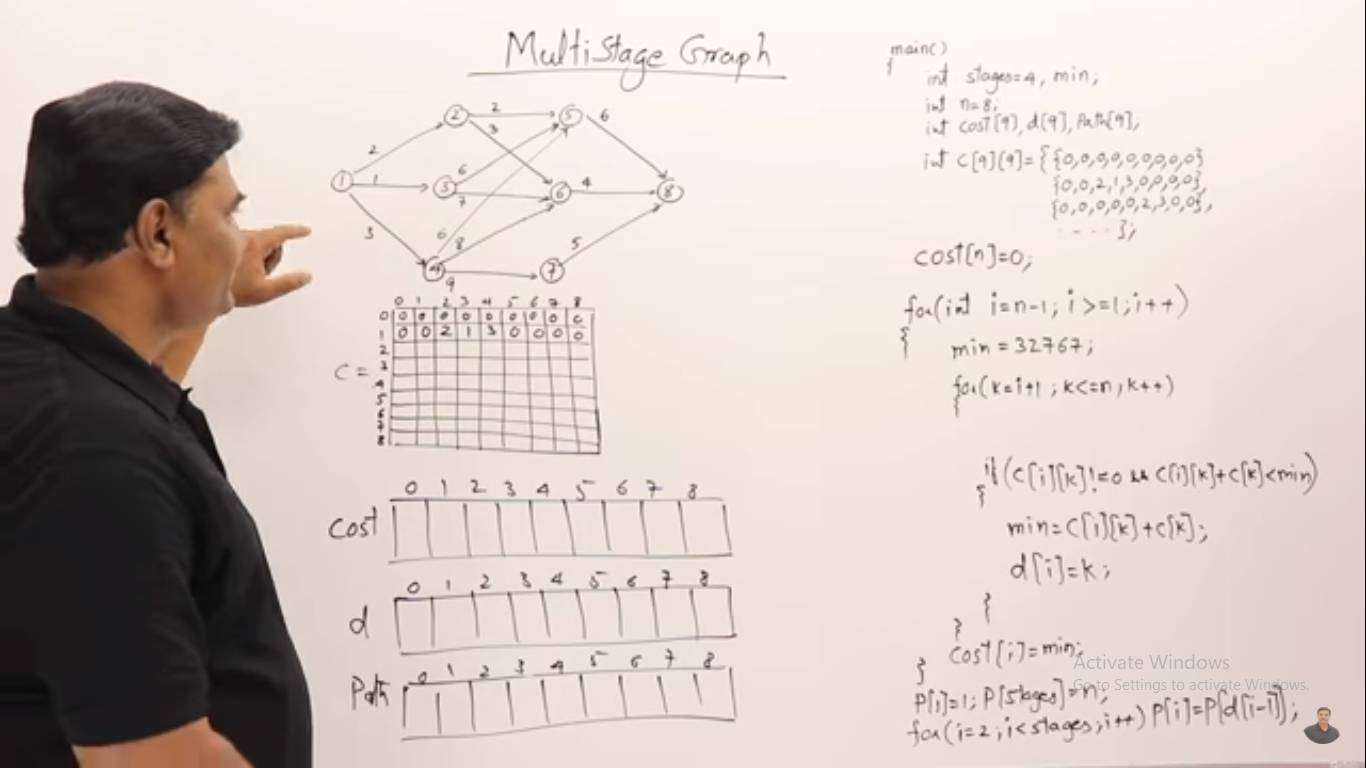 MultiStage Graph
2
2
5
6
2
3
1
1
3
6
7
6
4
8
3
6
8
5
4
9
7
0 1 2 3 4 5 6 7 8
0 0 0 0 0 0 0 0 0 0
1 0 0 2 1 3 0 0 0 0
2
C = 3
4
5
6
7
8
0 1 2 3 4 5 6 7 8
Cost
0 1 2 3 4 5 6 7 8
d
0 1 2 3 4 5 6 7 8
Path
main()
{
int stages=4, min;
int n=8;
int cost[9], d[9], Path[9];
int C[9][9]={{0,0,0,0,0,0,0,0,0}
{0,0,2,1,3,0,0,0,0},
{0,0,0,0,0,2,3,0,0},
. - - . };
cost[n]=0;
for(int i=n-1; i>=1; i++)
{
min = 32767;
for(k=i+1 ; k<=n; k++)
{
if(C[i][k]!=0 && C[i][k]+C[k]<min)
{
min=C[i][k]+C[k];
d[i]=k;
}
}
cost[i]=min;
}
P[1]=1; P[stages]=n;
for(i=2; i<stages; i++) P[i]=P[d[i-1]];
Activate Windows
Go to Settings to activate Windows.